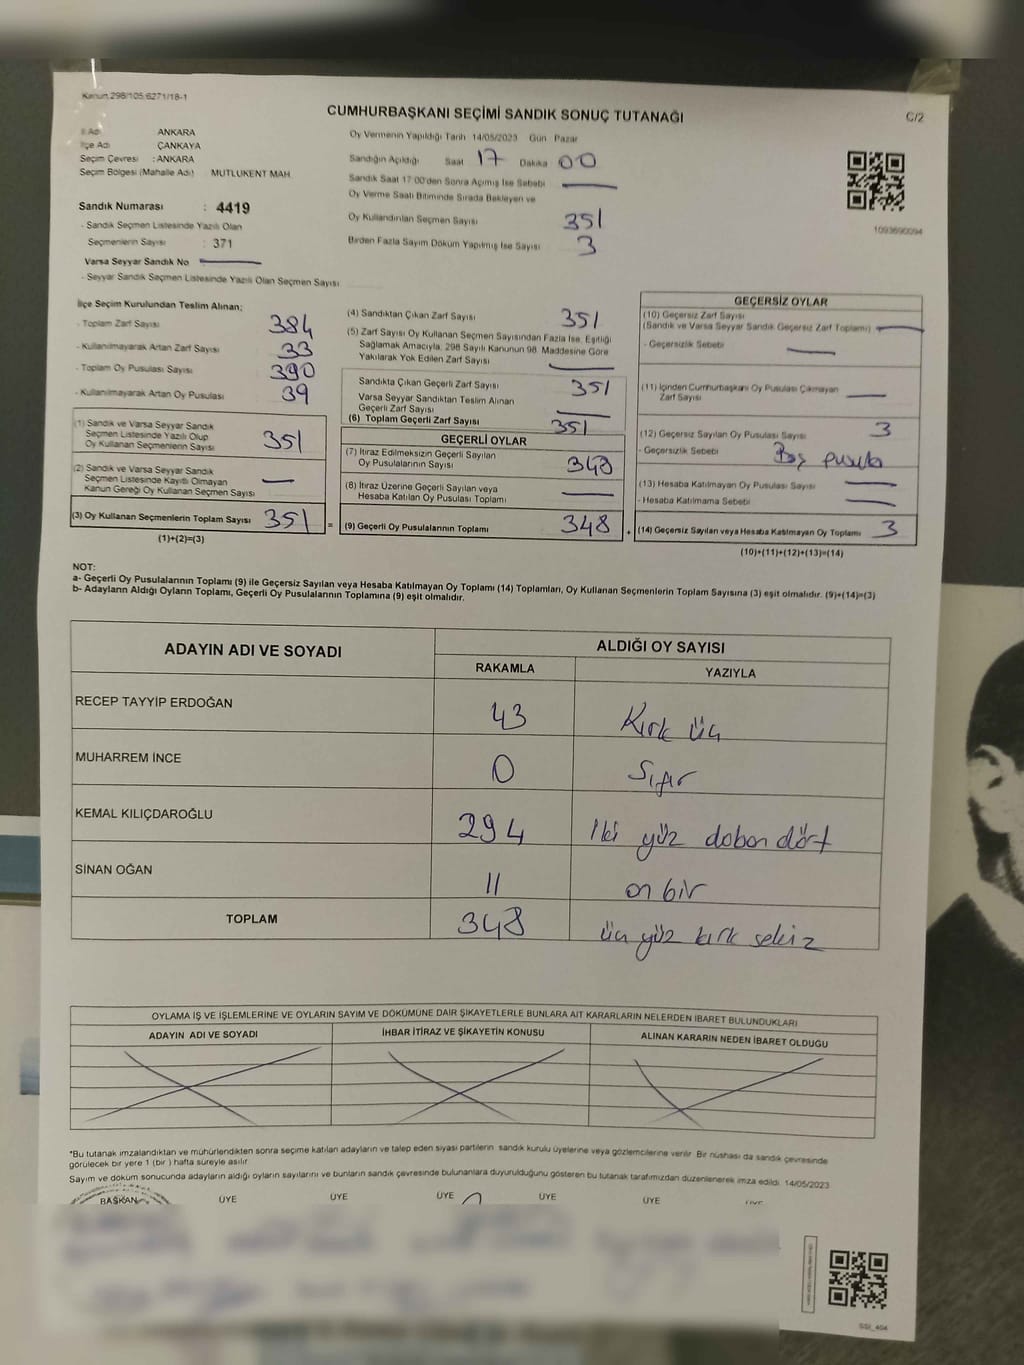 Kanun 298/105 6271/18-1
CUMHURBAŞKANI SEÇİMİ SANDIK SONUÇ TUTANAĞI
C/2
İl Adı ANKARA
İlçe Adı ÇANKAYA
Seçim Çevresi : ANKARA
Seçim Bölgesi (Mahalle Adı) MUTLUKENT MAH
Sandık Numarası : 4419
- Sandık Seçmen Listesinde Yazılı Olan
Seçmenlerin Sayısı : 371
Varsa Seyyar Sandık No
- Seyyar Sandık Seçmen Listesinde Yazılı Olan Seçmen Sayısı
Oy Vermenin Yapıldığı Tarih 14/05/2023 Gün Pazar
Sandığın Açıldığı Saat 17 Dakika 00
Sandık Saat 17:00'den Sonra Açılmış İse Sebebi
Oy Verme Saati Bitiminde Sırada Bekleyen ve
Oy Kullandırılan Seçmen Sayısı 351
Birden Fazla Sayım Döküm Yapılmış İse Sayısı 3
1093690094
İlçe Seçim Kurulundan Teslim Alınan;
- Toplam Zarf Sayısı 384
- Kullanılmayarak Artan Zarf Sayısı 33
- Toplam Oy Pusulası Sayısı 390
- Kullanılmayarak Artan Oy Pusulası 39
(1) Sandık ve Varsa Seyyar Sandık
Seçmen Listesinde Yazılı Olup
Oy Kullanan Seçmenlerin Sayısı 351
(2) Sandık ve Varsa Seyyar Sandık
Seçmen Listesinde Kayıtlı Olmayan
Kanun Gereği Oy Kullanan Seçmen Sayısı
(3) Oy Kullanan Seçmenlerin Toplam Sayısı 351 =
(1)+(2)=(3)
(4) Sandıktan Çıkan Zarf Sayısı 351
(5) Zarf Sayısı Oy Kullanan Seçmen Sayısından Fazla İse, Eşitliği
Sağlamak Amacıyla, 298 Sayılı Kanunun 98. Maddesine Göre
Yakılarak Yok Edilen Zarf Sayısı
Sandıkta Çıkan Geçerli Zarf Sayısı 351
Varsa Seyyar Sandıktan Teslim Alınan
Geçerli Zarf Sayısı
(6) Toplam Geçerli Zarf Sayısı 351
GEÇERLİ OYLAR
(7) İtiraz Edilmeksizin Geçerli Sayılan
Oy Pusulalarının Sayısı 348
(8) İtiraz Üzerine Geçerli Sayılan veya
Hesaba Katılan Oy Pusulası Toplamı
(9) Geçerli Oy Pusulalarının Toplamı 348 +
GEÇERSİZ OYLAR
(10) Geçersiz Zarf Sayısı
(Sandık ve Varsa Seyyar Sandık Geçersiz Zarf Toplamı)
- Geçersizlik Sebebi
(11) İçinden Cumhurbaşkanı Oy Pusulası Çıkmayan
Zarf Sayısı
(12) Geçersiz Sayılan Oy Pusulası Sayısı 3
- Geçersizlik Sebebi Boş pusula
(13) Hesaba Katılmayan Oy Pusulası Sayısı
- Hesaba Katılmama Sebebi
(14) Geçersiz Sayılan veya Hesaba Katılmayan Oy Toplamı 3
(10)+(11)+(12)+(13)=(14)
NOT:
a- Geçerli Oy Pusulalarının Toplamı (9) ile Geçersiz Sayılan veya Hesaba Katılmayan Oy Toplamı (14) Toplamları, Oy Kullanan Seçmenlerin Toplam Sayısına (3) eşit olmalıdır. (9)+(14)=(3)
b- Adayların Aldığı Oyların Toplamı, Geçerli Oy Pusulalarının Toplamına (9) eşit olmalıdır.
ADAYIN ADI VE SOYADI
ALDIĞI OY SAYISI
RAKAMLA YAZIYLA
RECEP TAYYİP ERDOĞAN 43 Kırk üç
MUHARREM İNCE 0 Sıfır
KEMAL KILIÇDAROĞLU 294 İki yüz doksan dört
SİNAN OĞAN 11 on bir
TOPLAM 348 üç yüz kırk sekiz
OYLAMA İŞ VE İŞLEMLERİNE VE OYLARIN SAYIM VE DÖKÜMÜNE DAİR ŞİKAYETLERLE BUNLARA AİT KARARLARIN NELERDEN İBARET BULUNDUKLARI
ADAYIN ADI VE SOYADI İHBAR İTİRAZ VE ŞİKAYETİN KONUSU ALINAN KARARIN NEDEN İBARET OLDUĞU
*Bu tutanak imzalandıktan ve mühürlendikten sonra seçime katılan adayların ve talep eden siyasi partilerin sandık kurulu üyelerine veya gözlemcilerine verilir. Bir nüshası da sandık çevresinde
görülecek bir yere 1 (bir ) hafta süreyle asılır.
Sayım ve döküm sonucunda adayların aldığı oyların sayılarını ve bunların sandık çevresinde bulunanlara duyurulduğunu gösteren bu tutanak tarafımızdan düzenlenerek imza edildi. 14/05/2023
BAŞKAN ÜYE ÜYE ÜYE ÜYE ÜYE ÜYE
SSI_404